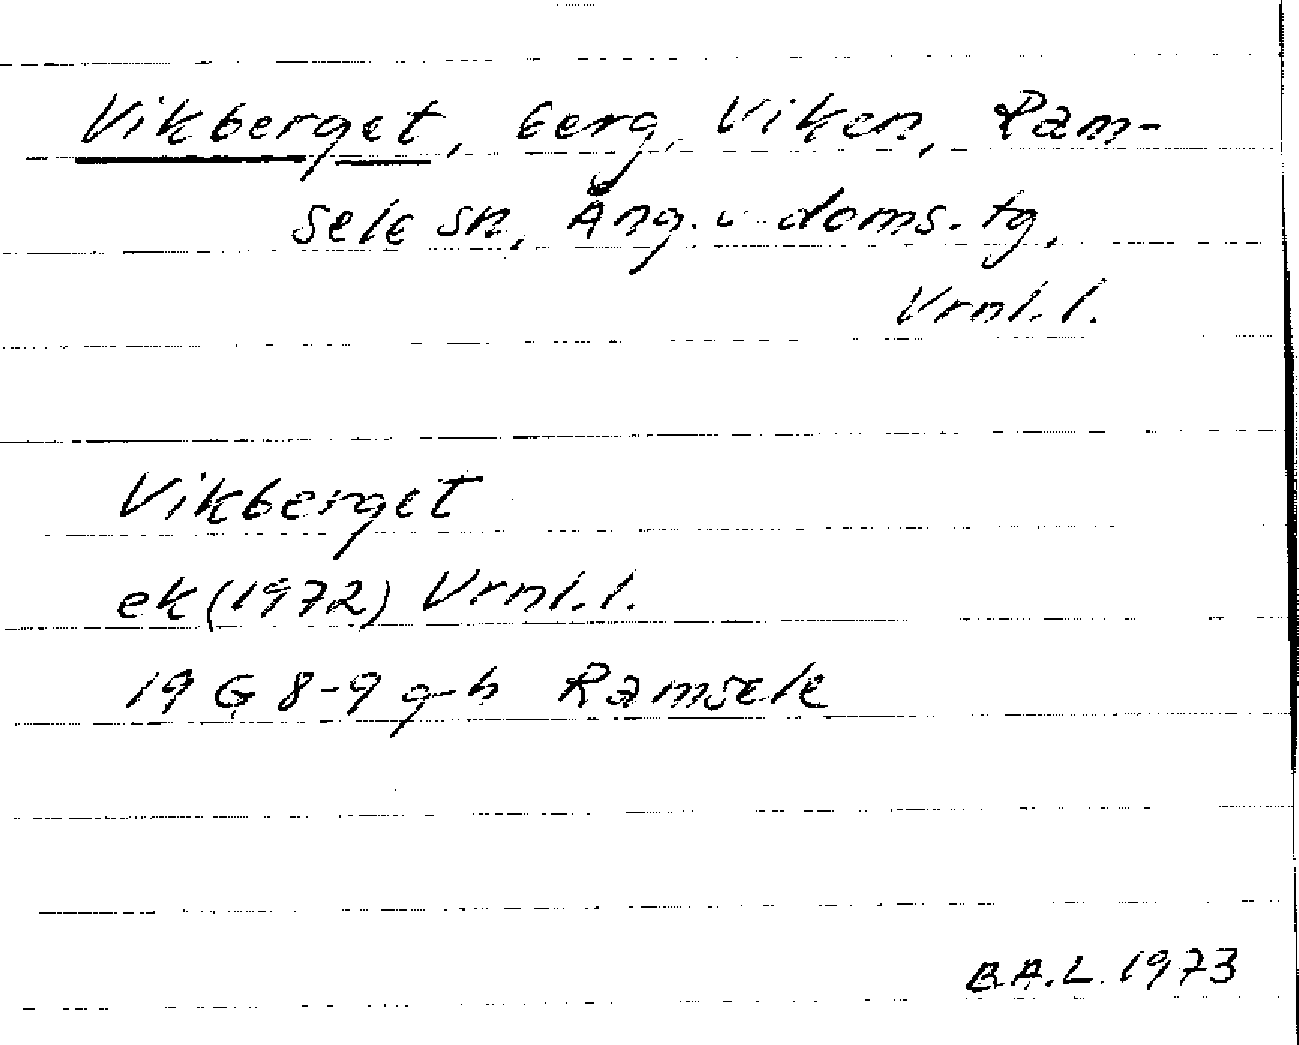 Vikberget, berg, Viken, Ram-
sele sn, Ång. v. doms. tg,
Vrnl. l.
Vikberget
ek (1972) Vrnl. l.
19 G 8-9 g-h Ramsele
B.A.L. 1973